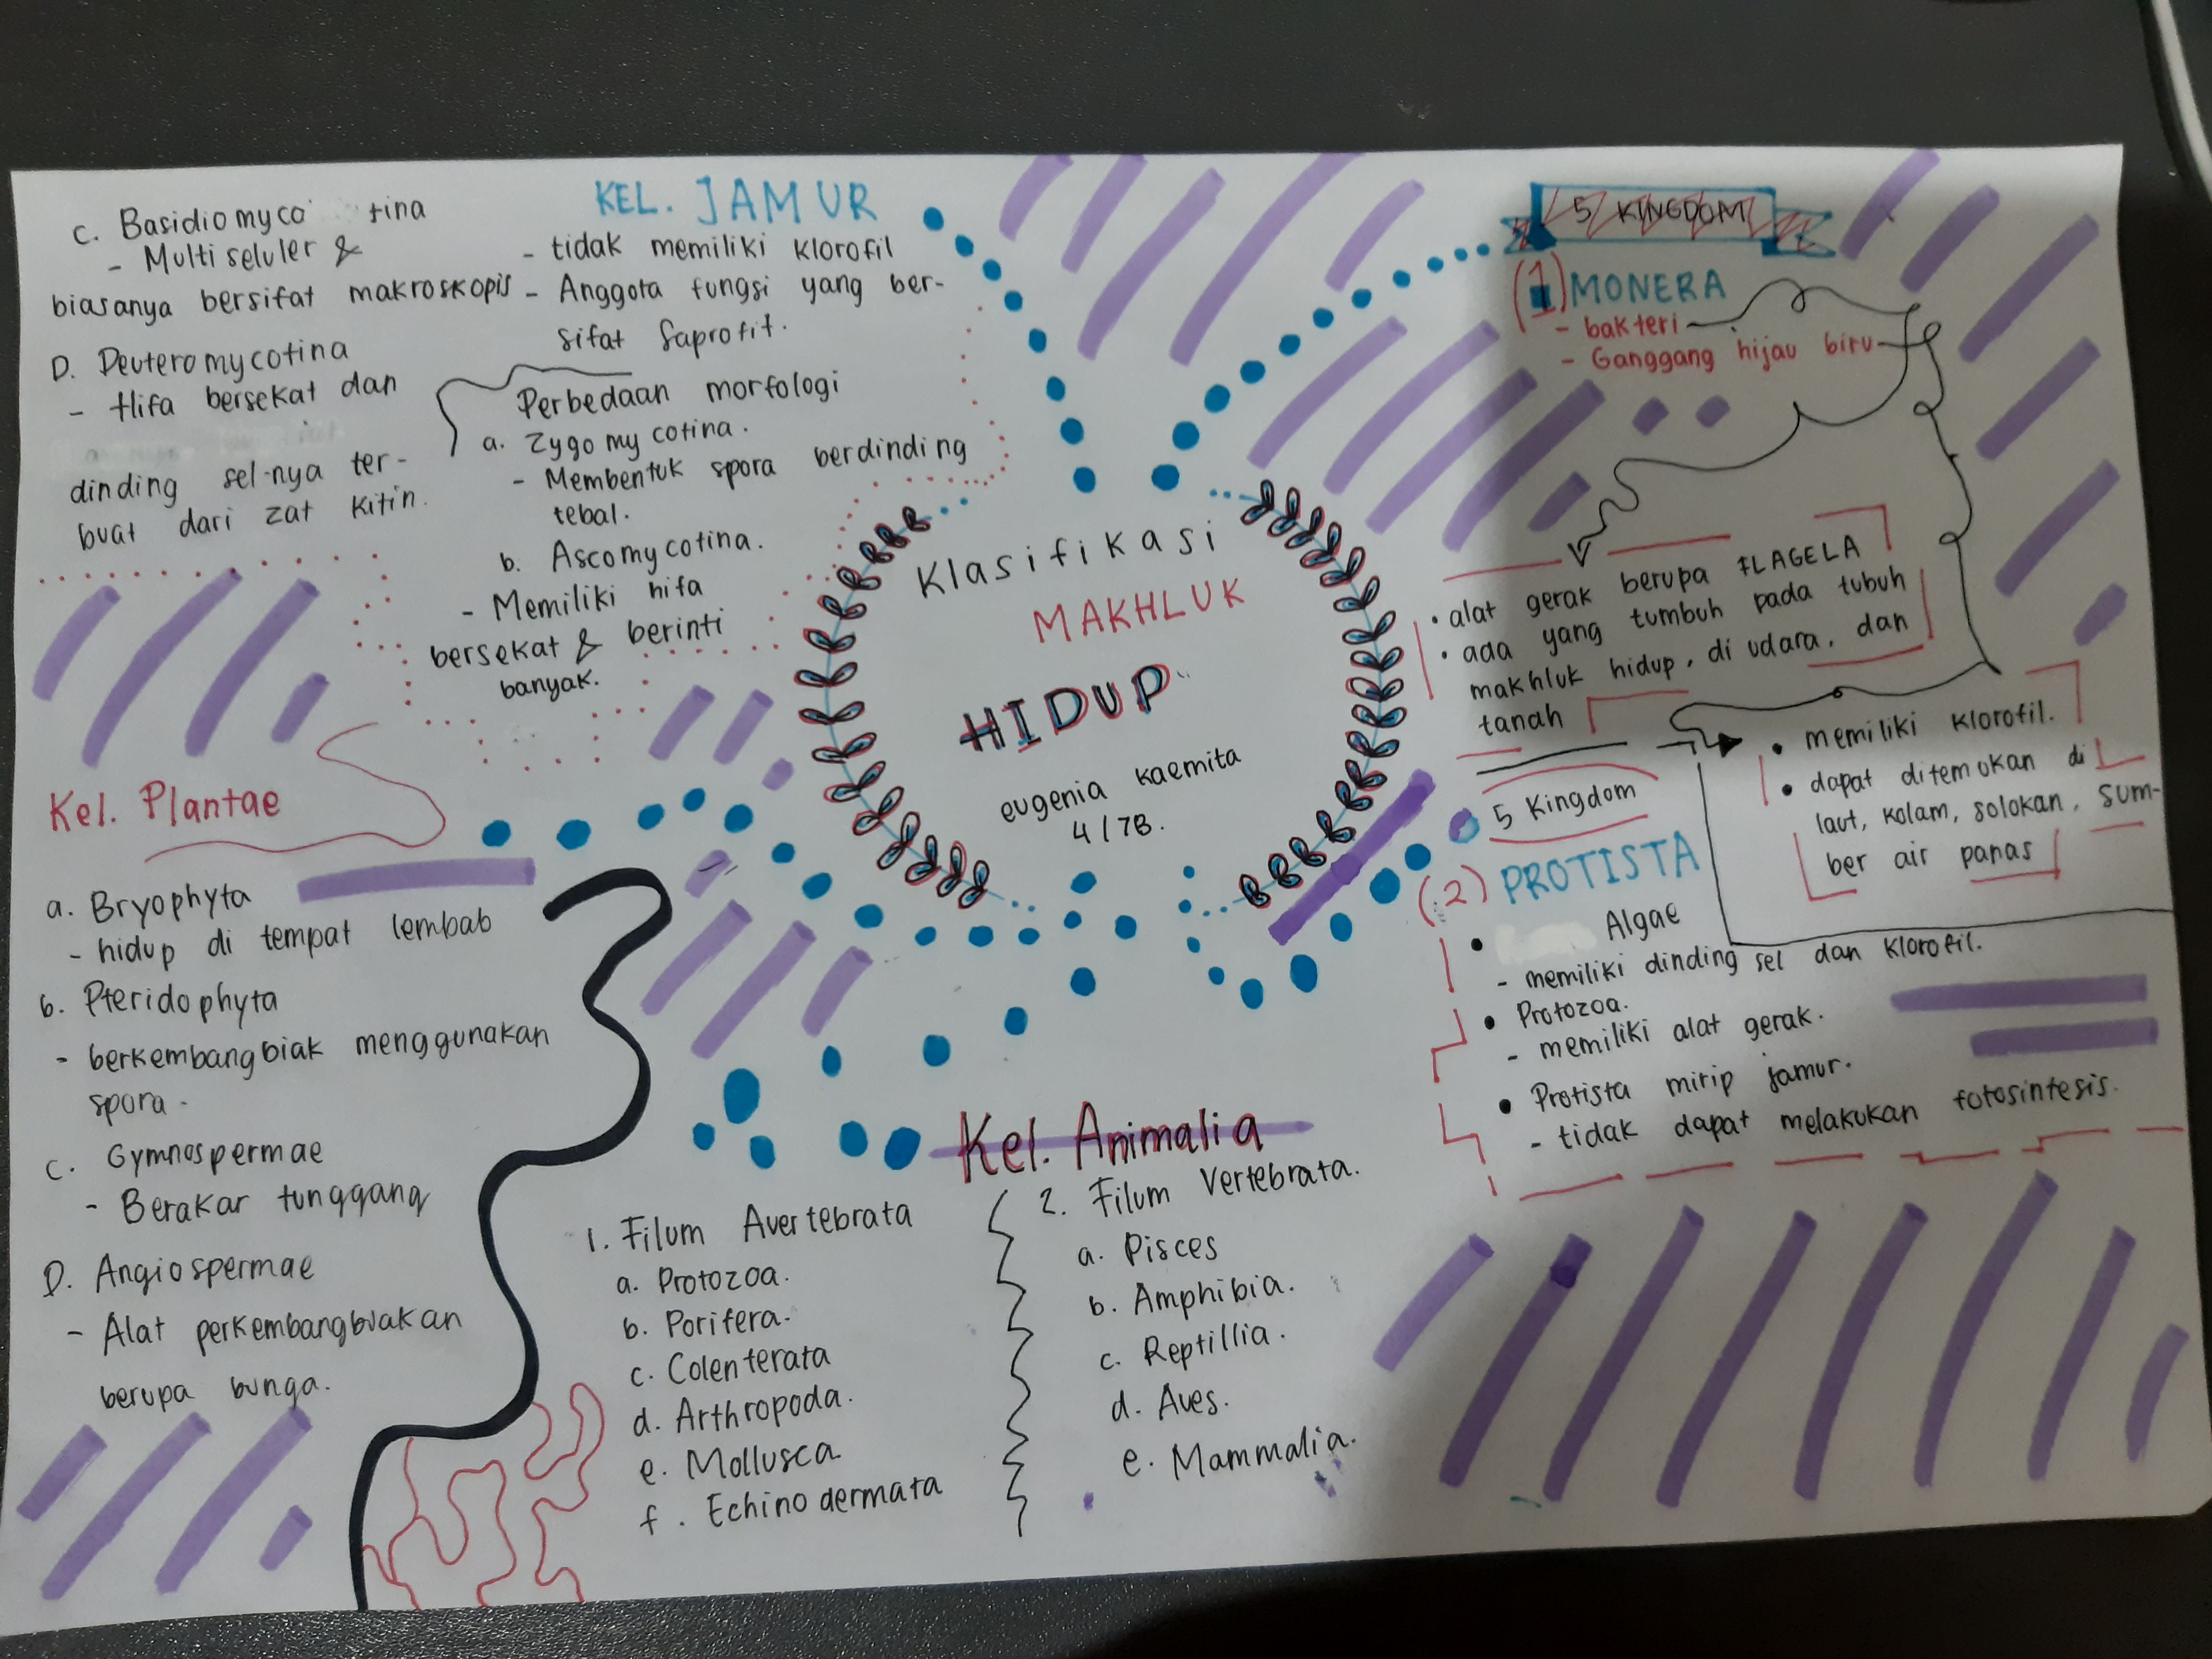 Klasifikasi
MAKHLUK
HIDUP
eugenia kaemita
4/7B.
5 KINGDOM
(1) MONERA
- bakteri
- Ganggang hijau biru
• alat gerak berupa FLAGELA
• ada yang tumbuh pada tubuh
makhluk hidup, di udara, dan
tanah
• memiliki klorofil.
• dapat ditemukan di
laut, kolam, solokan, sum-
ber air panas
5 Kingdom
(2) PROTISTA
• Algae
- memiliki dinding sel dan klorofil.
• Protozoa.
- memiliki alat gerak.
• Protista mirip jamur.
- tidak dapat melakukan fotosintesis.
KEL. JAMUR
- tidak memiliki klorofil
- Anggota fungsi yang ber-
sifat saprofit.
Perbedaan morfologi
a. Zygomycotina.
- Membentuk spora berdinding
tebal.
b. Ascomycotina.
- Memiliki hifa
bersekat & berinti
banyak.
c. Basidiomyco tina
- Multiseluler &
biasanya bersifat makroskopis
D. Deuteromycotina
- Hifa bersekat dan
dinding sel-nya ter-
buat dari zat kitin.
Kel. Plantae
a. Bryophyta
- hidup di tempat lembab
b. Pteridophyta
- berkembangbiak menggunakan
spora.
c. Gymnospermae
- Berakar tunggang
D. Angiospermae
- Alat perkembangbiakan
berupa bunga.
Kel. Animalia
1. Filum Avertebrata
a. Protozoa.
b. Porifera.
c. Colenterata
d. Arthropoda.
e. Mollusca
f. Echinodermata
2. Filum Vertebrata.
a. Pisces
b. Amphibia.
c. Reptillia.
d. Aves.
e. Mammalia.